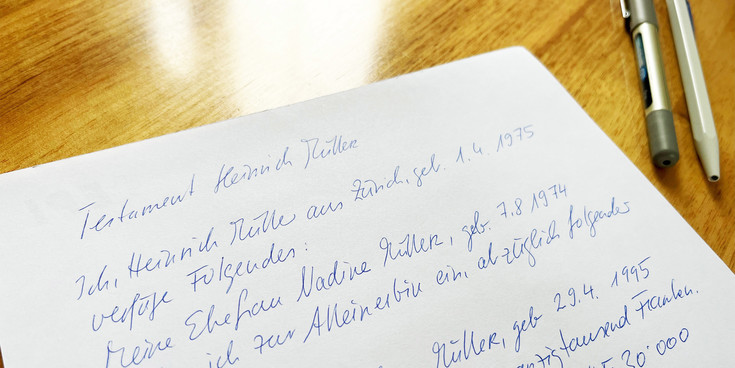 Testament Heinrich Müller
Ich, Heinrich Müller aus Zürich, geb. 1.4.1975
verfüge Folgendes:
Meine Ehefrau Nadine Müller, geb. 7.8 1974
ich zur Alleinerbin ein, abzüglich folgender
Müller, geb 29.4. 1995
tausend Franken.
30'000